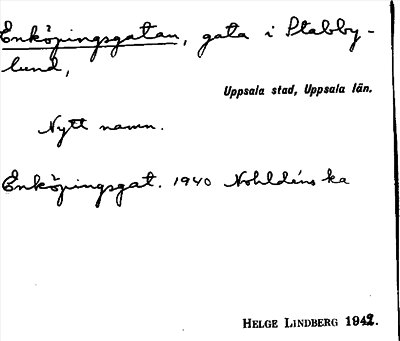 Enköpingsgatan, gata i Stabby-
lund,
Uppsala stad, Uppsala län.
Nytt namn.
Enköpingsgat. 1940 Nohldéns ka
HELGE LINDBERG 1942.